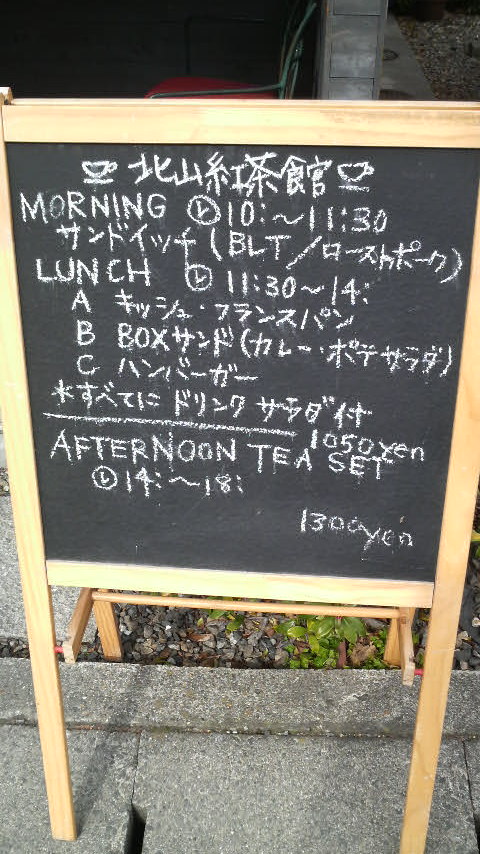 北山紅茶館
MORNING 10:〜11:30
サンドイッチ(BLT/ローストポーク)
LUNCH 11:30〜14:
A キッシュ・フランスパン
B BOXサンド(カレー・ポテサラダ)
C ハンバーガー
*すべてに ドリンク サラダ付
1050yen
AFTERNOON TEA SET
14:〜18:
1300yen